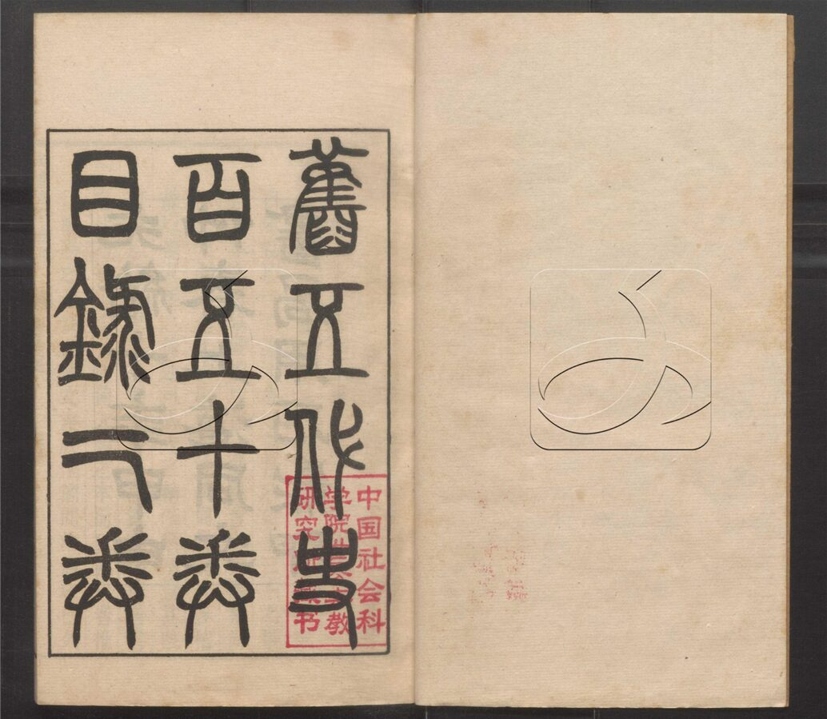 舊五代史
百五十卷
目錄二卷
中国社会科
学院世界宗教
研究所藏书